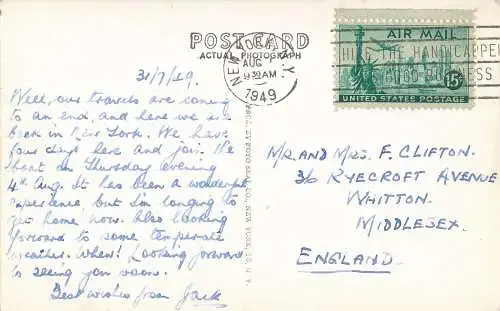 POST CARD
ACTUAL PHOTOGRAPH
31/7/49.
Well, our travels are coming
to an end, and here we are
back in New York. We have
four days here and join the
boat on Thursday evening
4th Aug. It has been a wonderful
experience but I'm longing to
get home now. Also looking
forward to some temperate
weather. Whew! Looking forward
to seeing you soon.
Best wishes from Jack
NEW YORK, N.Y.
AUG
9 30 AM
1949
AIR MAIL
THE HANDICAPPED
GOOD BUSINESS
15¢
UNITED STATES POSTAGE
MR. AND MRS. F. CLIFTON.
36 RYECROFT AVENUE
WHITTON.
MIDDLESEX.
ENGLAND.